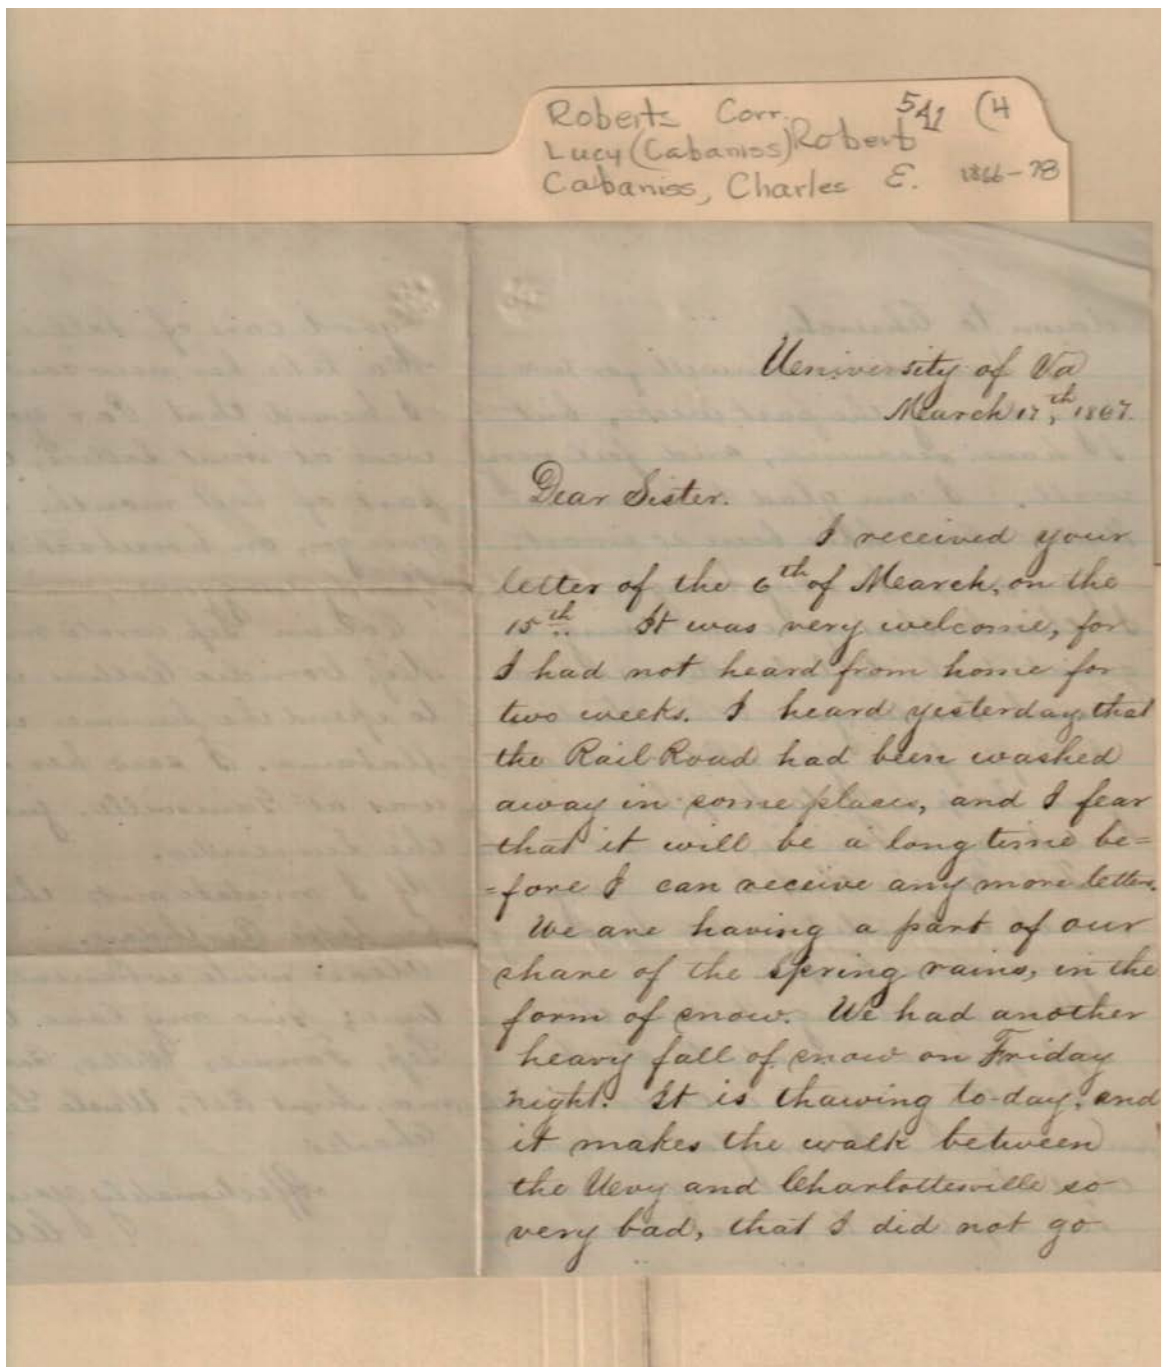 Roberts Corr. 541 (4
Lucy (Cabaniss) Robert
Cabaniss, Charles E. 1866-78
University of Va
March 17th, 1867.
Dear Sister.
I received your
letter of the 6th of March, on the
15th. It was very welcome, for
I had not heard from home for
two weeks. I heard yesterday that
the Rail Road had been washed
away in some places, and I fear
that it will be a long time be=
=fore I can receive any more letters.
We are having a part of our
share of the spring rains, in the
form of snow. We had another
heavy fall of snow on Friday
night. It is thawing to-day, and
it makes the walk between
the Uevy and Charlottesville so
very bad, that I did not go